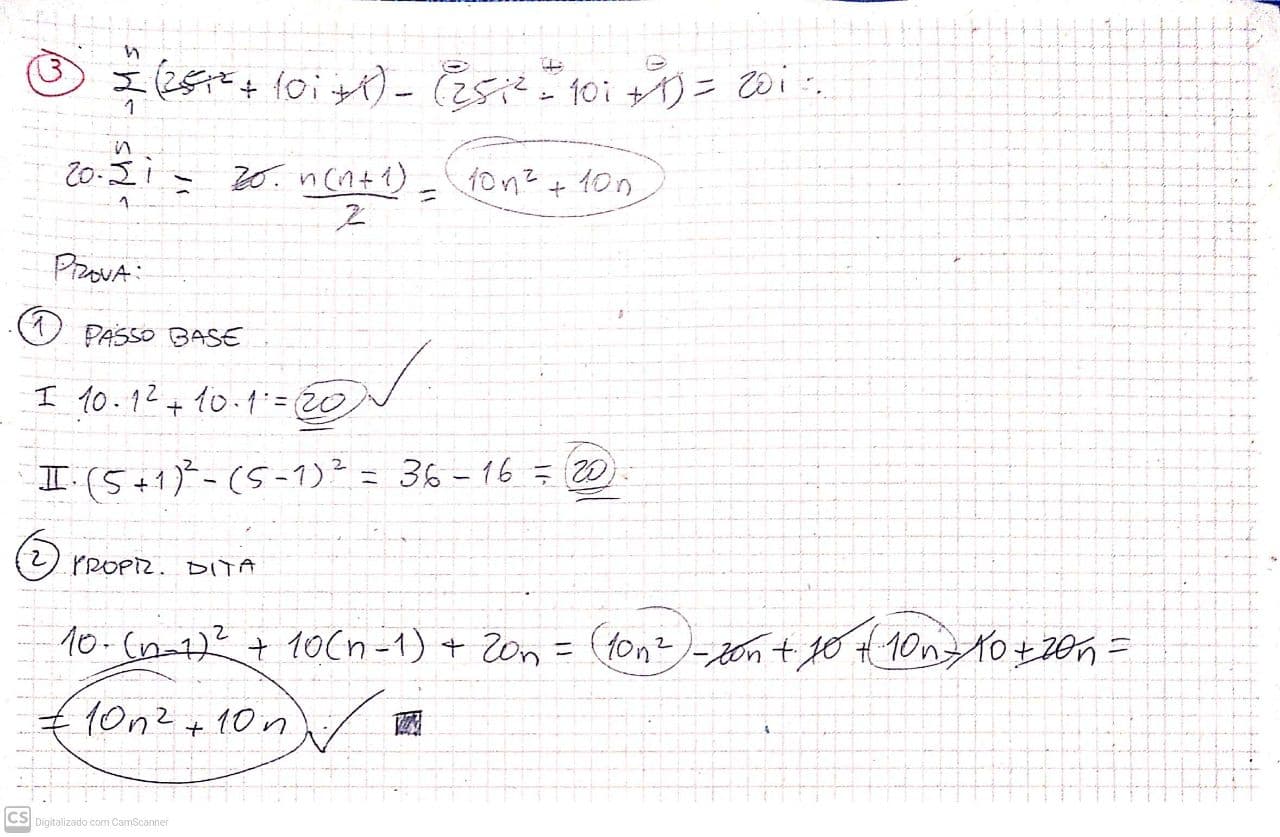 ③ n Σ 1 (25i² + 10i + 1) - (25i² - 10i + 1) = 20i ∴
20. n Σ 1 i = 20. n(n+1)/2 = 10n² + 10n
PROVA:
① PASSO BASE
I 10.1² + 10.1 = 20 ✓
II. (5+1)² - (5-1)² = 36 - 16 = 20
② PROPR. DITA
10.(n-1)² + 10(n-1) + 20n = 10n² - 20n + 10 + 10n - 10 + 20n =
= 10n² + 10n ✓ ■
CS Digitalizado com CamScanner